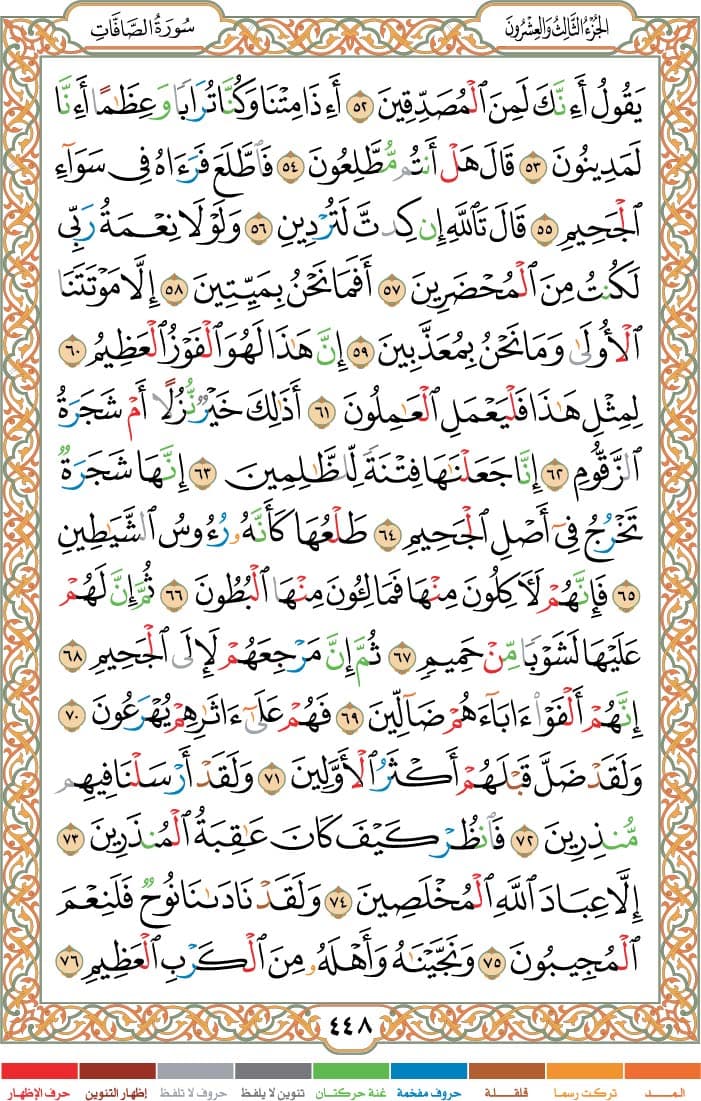 الجُزْءُ الثَّالِثُ وَالعِشْرُونَ
سُورَةُ الصَّافَّاتِ
يَقُولُ أَءِنَّكَ لَمِنَ ٱلْمُصَدِّقِينَ ٥٢ أَءِذَا مِتْنَا وَكُنَّا تُرَابًا وَعِظَٰمًا أَءِنَّا
لَمَدِينُونَ ٥٣ قَالَ هَلْ أَنتُم مُّطَّلِعُونَ ٥٤ فَٱطَّلَعَ فَرَءَاهُ فِى سَوَآءِ
ٱلْجَحِيمِ ٥٥ قَالَ تَٱللَّهِ إِن كِدتَّ لَتُرْدِينِ ٥٦ وَلَوْلَا نِعْمَةُ رَبِّى
لَكُنتُ مِنَ ٱلْمُحْضَرِينَ ٥٧ أَفَمَا نَحْنُ بِمَيِّتِينَ ٥٨ إِلَّا مَوْتَتَنَا
ٱلْأُولَىٰ وَمَا نَحْنُ بِمُعَذَّبِينَ ٥٩ إِنَّ هَٰذَا لَهُوَ ٱلْفَوْزُ ٱلْعَظِيمُ ٦٠
لِمِثْلِ هَٰذَا فَلْيَعْمَلِ ٱلْعَٰمِلُونَ ٦١ أَذَٰلِكَ خَيْرٌ نُّزُلًا أَمْ شَجَرَةُ
ٱلزَّقُّومِ ٦٢ إِنَّا جَعَلْنَٰهَا فِتْنَةً لِّلظَّٰلِمِينَ ٦٣ إِنَّهَا شَجَرَةٌ
تَخْرُجُ فِىٓ أَصْلِ ٱلْجَحِيمِ ٦٤ طَلْعُهَا كَأَنَّهُۥ رُءُوسُ ٱلشَّيَٰطِينِ
٦٥ فَإِنَّهُمْ لَـَٔاكِلُونَ مِنْهَا فَمَالِـُٔونَ مِنْهَا ٱلْبُطُونَ ٦٦ ثُمَّ إِنَّ لَهُمْ
عَلَيْهَا لَشَوْبًا مِّنْ حَمِيمٍ ٦٧ ثُمَّ إِنَّ مَرْجِعَهُمْ لَإِلَى ٱلْجَحِيمِ ٦٨
إِنَّهُمْ أَلْفَوْا۟ ءَابَآءَهُمْ ضَآلِّينَ ٦٩ فَهُمْ عَلَىٰٓ ءَاثَٰرِهِمْ يُهْرَعُونَ ٧٠
وَلَقَدْ ضَلَّ قَبْلَهُمْ أَكْثَرُ ٱلْأَوَّلِينَ ٧١ وَلَقَدْ أَرْسَلْنَا فِيهِم
مُّنذِرِينَ ٧٢ فَٱنظُرْ كَيْفَ كَانَ عَٰقِبَةُ ٱلْمُنذَرِينَ ٧٣
إِلَّا عِبَادَ ٱللَّهِ ٱلْمُخْلَصِينَ ٧٤ وَلَقَدْ نَادَىٰنَا نُوحٌ فَلَنِعْمَ
ٱلْمُجِيبُونَ ٧٥ وَنَجَّيْنَٰهُ وَأَهْلَهُۥ مِنَ ٱلْكَرْبِ ٱلْعَظِيمِ ٧٦
٤٤٨
المـــد تركت رسما قلقـــلة حروف مفخمة غنة حركتـان تنوين لا يلفظ حروف لا تلفظ إظهار التنوين حرف الإظهار